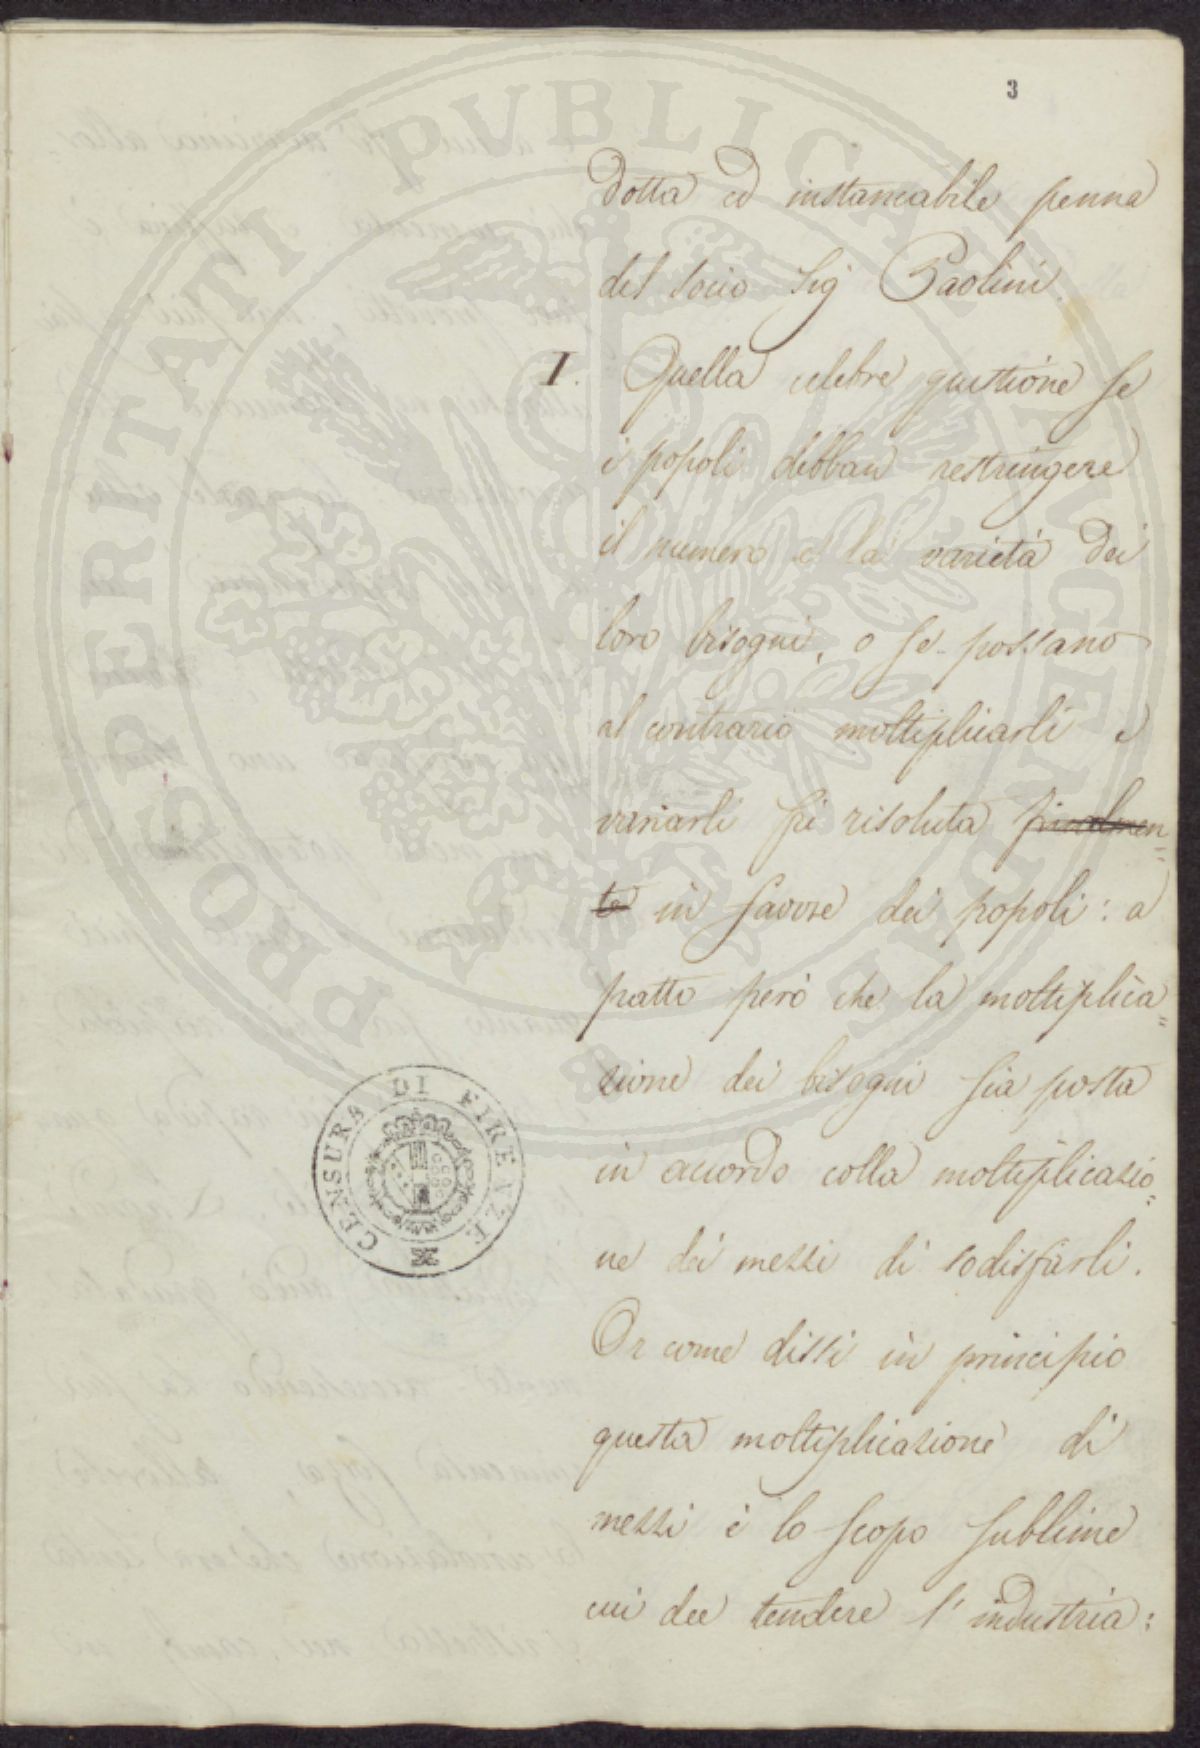 3
dotta ed instancabile penna
del socio Sig Paolini.
I. Quella celebre quistione se
i popoli debban restringere
il numero e la varietà dei
loro bisogni, o se possano
al contrario moltiplicarli e
variarli fu risoluta finalmen=
te in favore dei popoli: a
patto però che la moltiplica=
zione dei bisogni sia posta
in accordo colla moltiplicazio=
ne dei mezzi di sodisfarli.
Or come dissi in principio
questa moltiplicazione di
mezzi è lo scopo sublime
cui dee tendere l'industria:
CENSURA DI FIRENZE
PROSPERITATI PVBLICAE AVGENDAE